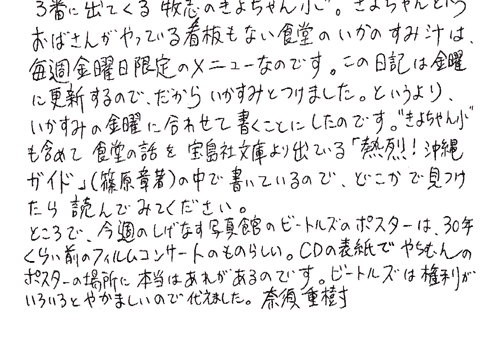 3番に出てくる 牧志のきよちゃん小"。きよちゃんという
おばさんがやっている看板もない食堂のいかのすみ汁は、
毎週金曜日限定のメニューなのです。この日記は金曜
に更新するので、だからいかすみとつけました。というより、
いかすみの金曜に合わせて書くことにしたのです。"きよちゃん小"
も含めて 食堂の話を宝島社文庫より出ている「熱烈!沖縄
ガイド」(篠原章著)の中で書いているので、どこかで見つけ
たら 読んでみてください。
ところで、今週のしげなす写真館のビートルズのポスターは、30年
くらい前のフィルムコンサートのものらしい。CDの表紙でやちむんの
ポスターの場所に本当はあれがあるのです。ビートルズは権利が
いろいろとやかましいので代えました。奈須重樹